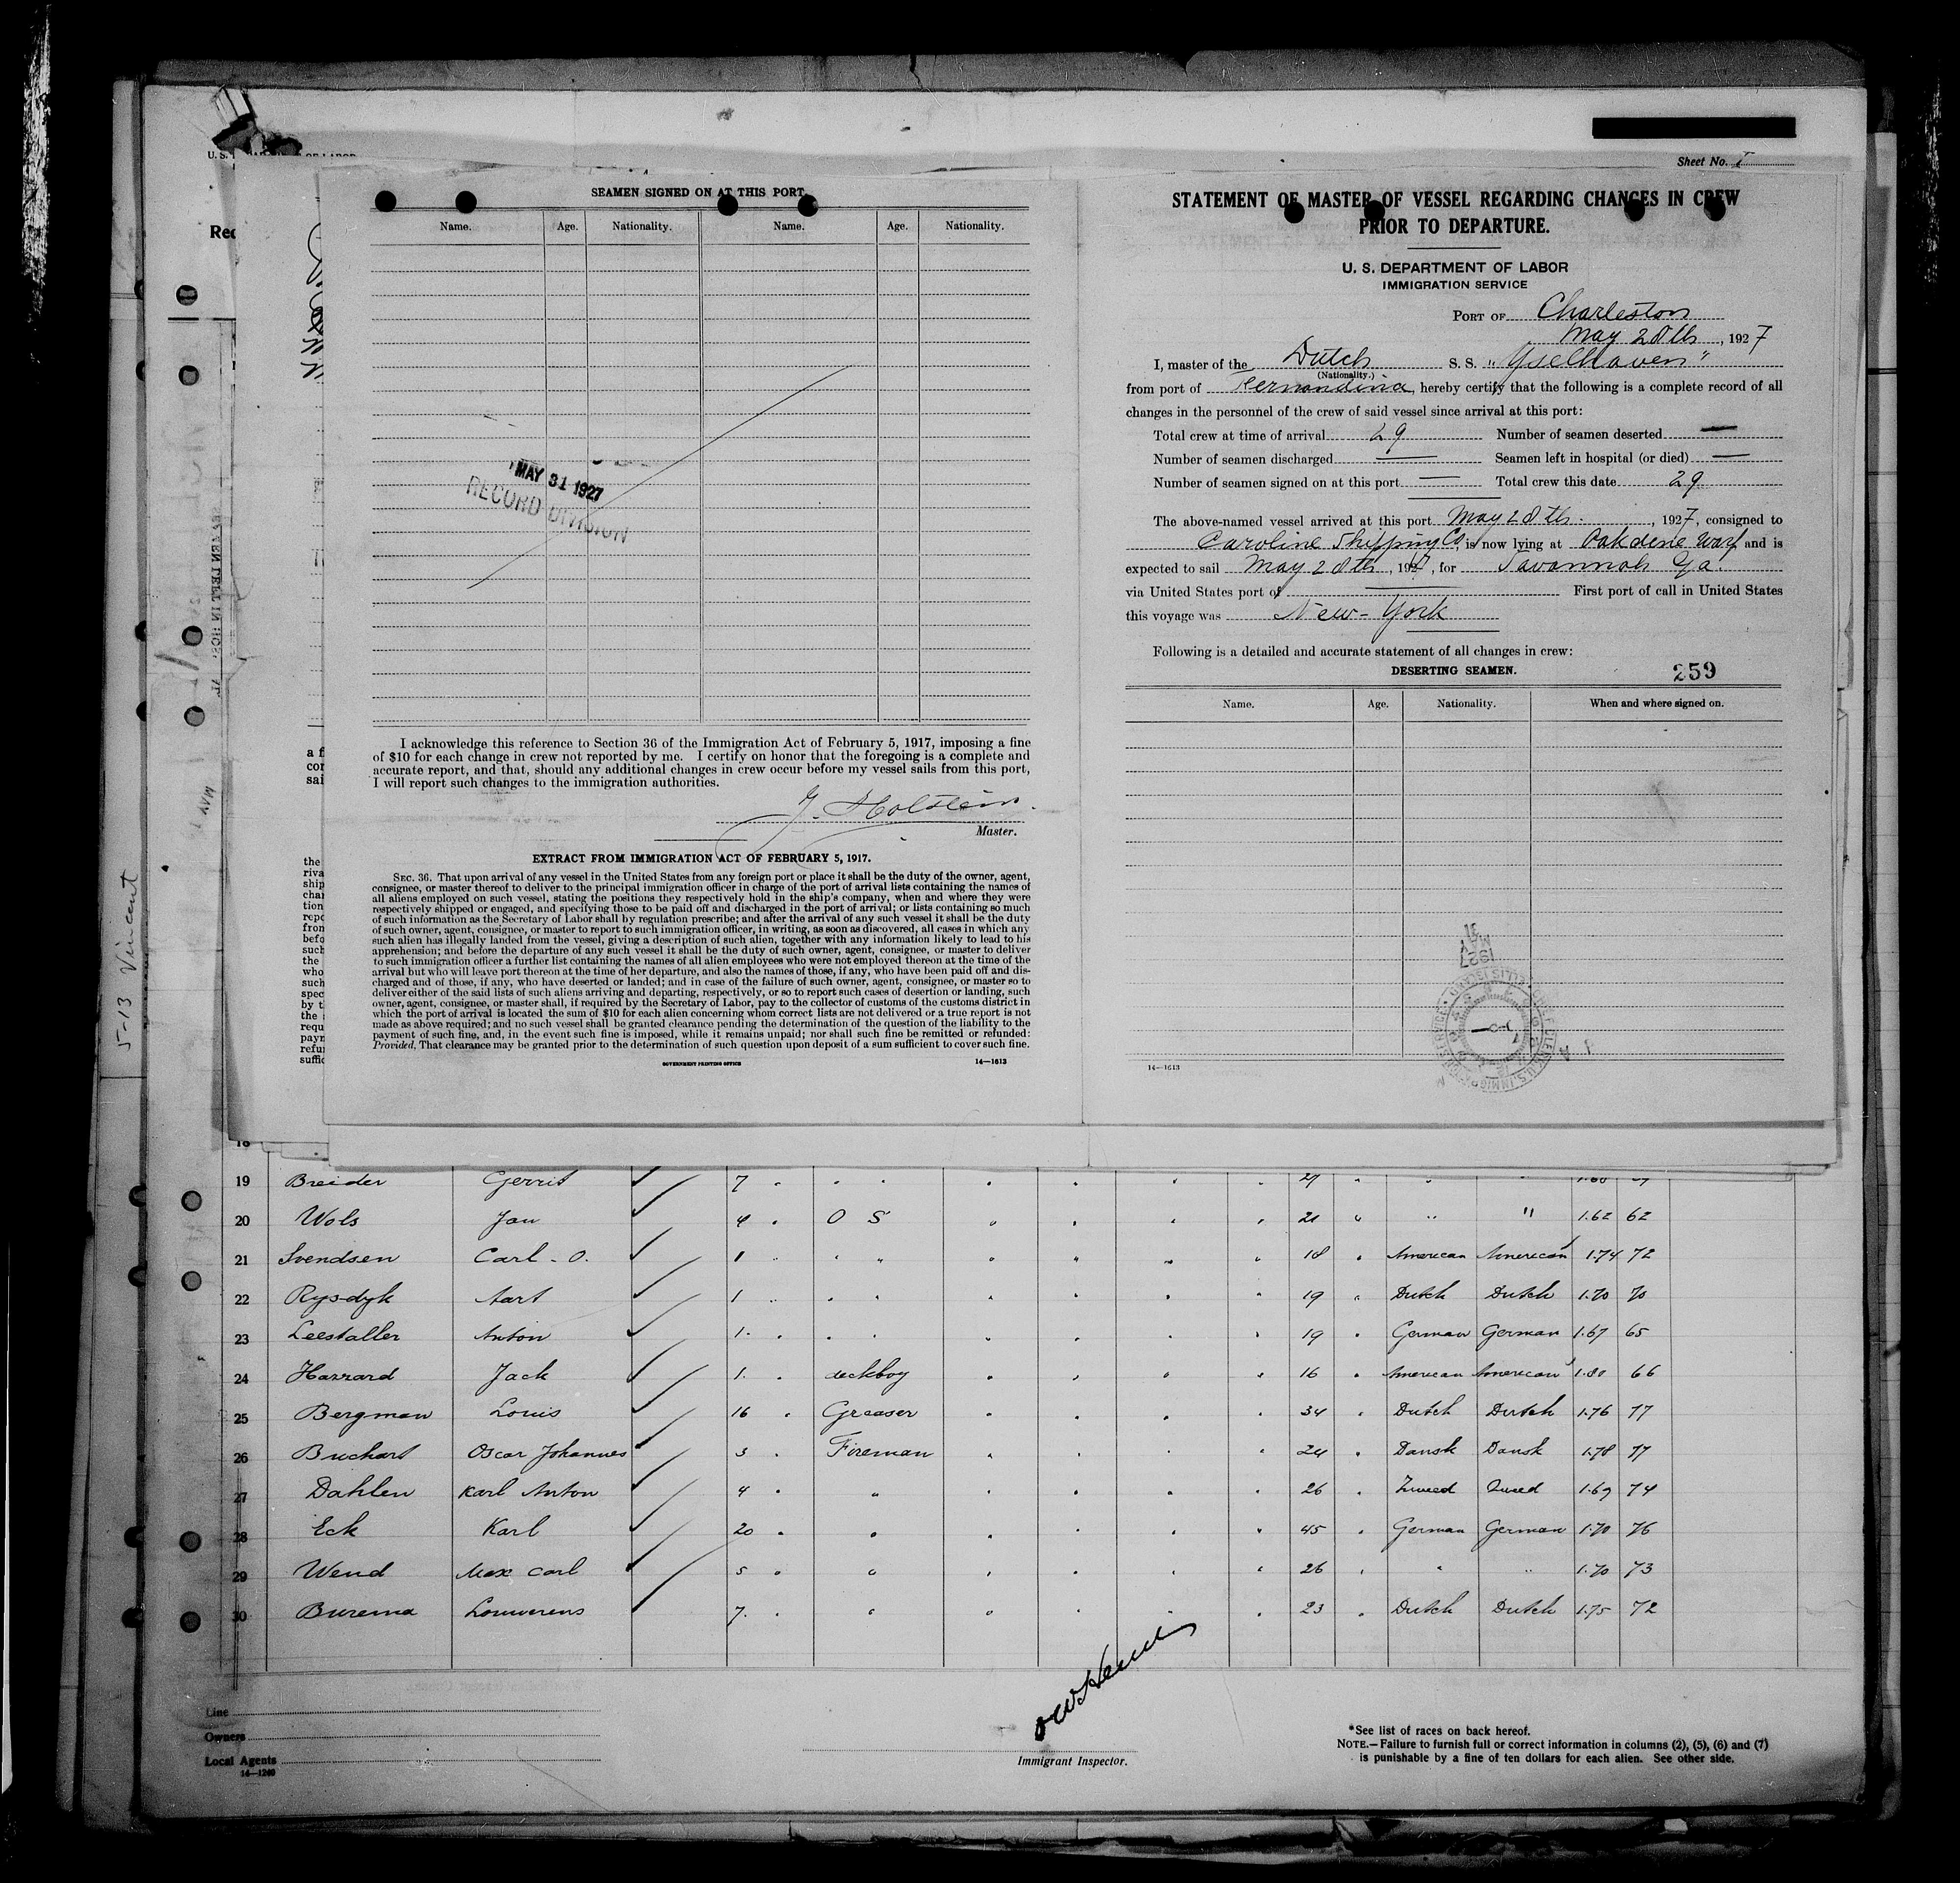 Sheet No. I
SEAMEN SIGNED ON AT THIS PORT.
Name. Age. Nationality. Name. Age. Nationality.
MAY 31 1927
RECORD DIVISION
I acknowledge this reference to Section 36 of the Immigration Act of February 5, 1917, imposing a fine
of $10 for each change in crew not reported by me. I certify on honor that the foregoing is a complete and
accurate report, and that, should any additional changes in crew occur before my vessel sails from this port,
I will report such changes to the immigration authorities.
J. Holstein.
Master.
EXTRACT FROM IMMIGRATION ACT OF FEBRUARY 5, 1917.
SEC. 36. That upon arrival of any vessel in the United States from any foreign port or place it shall be the duty of the owner, agent,
consignee, or master thereof to deliver to the principal immigration officer in charge of the port of arrival lists containing the names of
all aliens employed on such vessel, stating the positions they respectively hold in the ship's company, when and where they were
respectively shipped or engaged, and specifying those to be paid off and discharged in the port of arrival; or lists containing so much
of such information as the Secretary of Labor shall by regulation prescribe; and after the arrival of any such vessel it shall be the duty
of such owner, agent, consignee, or master to report to such immigration officer, in writing, as soon as discovered, all cases in which any
such alien has illegally landed from the vessel, giving a description of such alien, together with any information likely to lead to his
apprehension; and before the departure of any such vessel it shall be the duty of such owner, agent, consignee, or master to deliver
to such immigration officer a further list containing the names of all alien employees who were not employed thereon at the time of the
arrival but who will leave port thereon at the time of her departure, and also the names of those, if any, who have been paid off and dis-
charged and of those, if any, who have deserted or landed; and in case of the failure of such owner, agent, consignee, or master so to
deliver either of the said lists of such aliens arriving and departing, respectively, or so to report such cases of desertion or landing, such
owner, agent, consignee, or master shall, if required by the Secretary of Labor, pay to the collector of customs of the customs district in
which the port of arrival is located the sum of $10 for each alien concerning whom correct lists are not delivered or a true report is not
made as above required; and no such vessel shall be granted clearance pending the determination of the question of the liability to the
payment of such fine, and, in the event such fine is imposed, while it remains unpaid; nor shall such fine be remitted or refunded:
Provided, That clearance may be granted prior to the determination of such question upon deposit of a sum sufficient to cover such fine.
GOVERNMENT PRINTING OFFICE 14—1613
STATEMENT OF MASTER OF VESSEL REGARDING CHANGES IN CREW
PRIOR TO DEPARTURE.
U. S. DEPARTMENT OF LABOR
IMMIGRATION SERVICE
PORT OF Charleston
May 28th, 1927
I, master of the Dutch S. S. "Yselhaven"
(Nationality.)
from port of Fernandina, hereby certify that the following is a complete record of all
changes in the personnel of the crew of said vessel since arrival at this port:
Total crew at time of arrival 29 Number of seamen deserted —
Number of seamen discharged — Seamen left in hospital (or died) —
Number of seamen signed on at this port — Total crew this date 29
The above-named vessel arrived at this port May 28th., 1927, consigned to
Caroline Shipping Co, is now lying at Oakdene Warf and is
expected to sail May 28th, 1927, for Savannah Ga.
via United States port of — First port of call in United States
this voyage was New-York
Following is a detailed and accurate statement of all changes in crew:
DESERTING SEAMEN. 259
Name. Age. Nationality. When and where signed on.
1927
MAY
31
14—1613
5-13 Vincent
18
19 Breider Gerrit 7 " " " 29
20 Wols Jan 4 " O S 21 " " " 1.62 62
21 Svendsen Carl - O. 1 " " " 18 " American American 1.74 72
22 Rysdyk Aart 1 " " " 19 " Dutch Dutch 1.70 70
23 Leestaller Anton 1. " " " 19 " German German 1.67 65
24 Harrard Jack 1. " deckboy 16 " American American 1.80 66
25 Bergman Louis 16 " Greaser 34 " Dutch Dutch 1.76 77
26 Buchart Oscar Johannes 3 " Fireman 24 " Dansk Dansk 1.78 77
27 Dahlen Karl Anton 4 " " 26 " Zweed Zweed 1.69 74
28 Eck Karl 20 " " 45 " German German 1.70 76
29 Wend Max Carl 5 " " 26 " " " 1.70 73
30 Burema Louwerens 7. " " 23 " Dutch Dutch 1.75 72
Line
Owners
Local Agents
14—1240
Immigrant Inspector.
*See list of races on back hereof.
NOTE.—Failure to furnish full or correct information in columns (2), (5), (6) and (7)
is punishable by a fine of ten dollars for each alien. See other side.